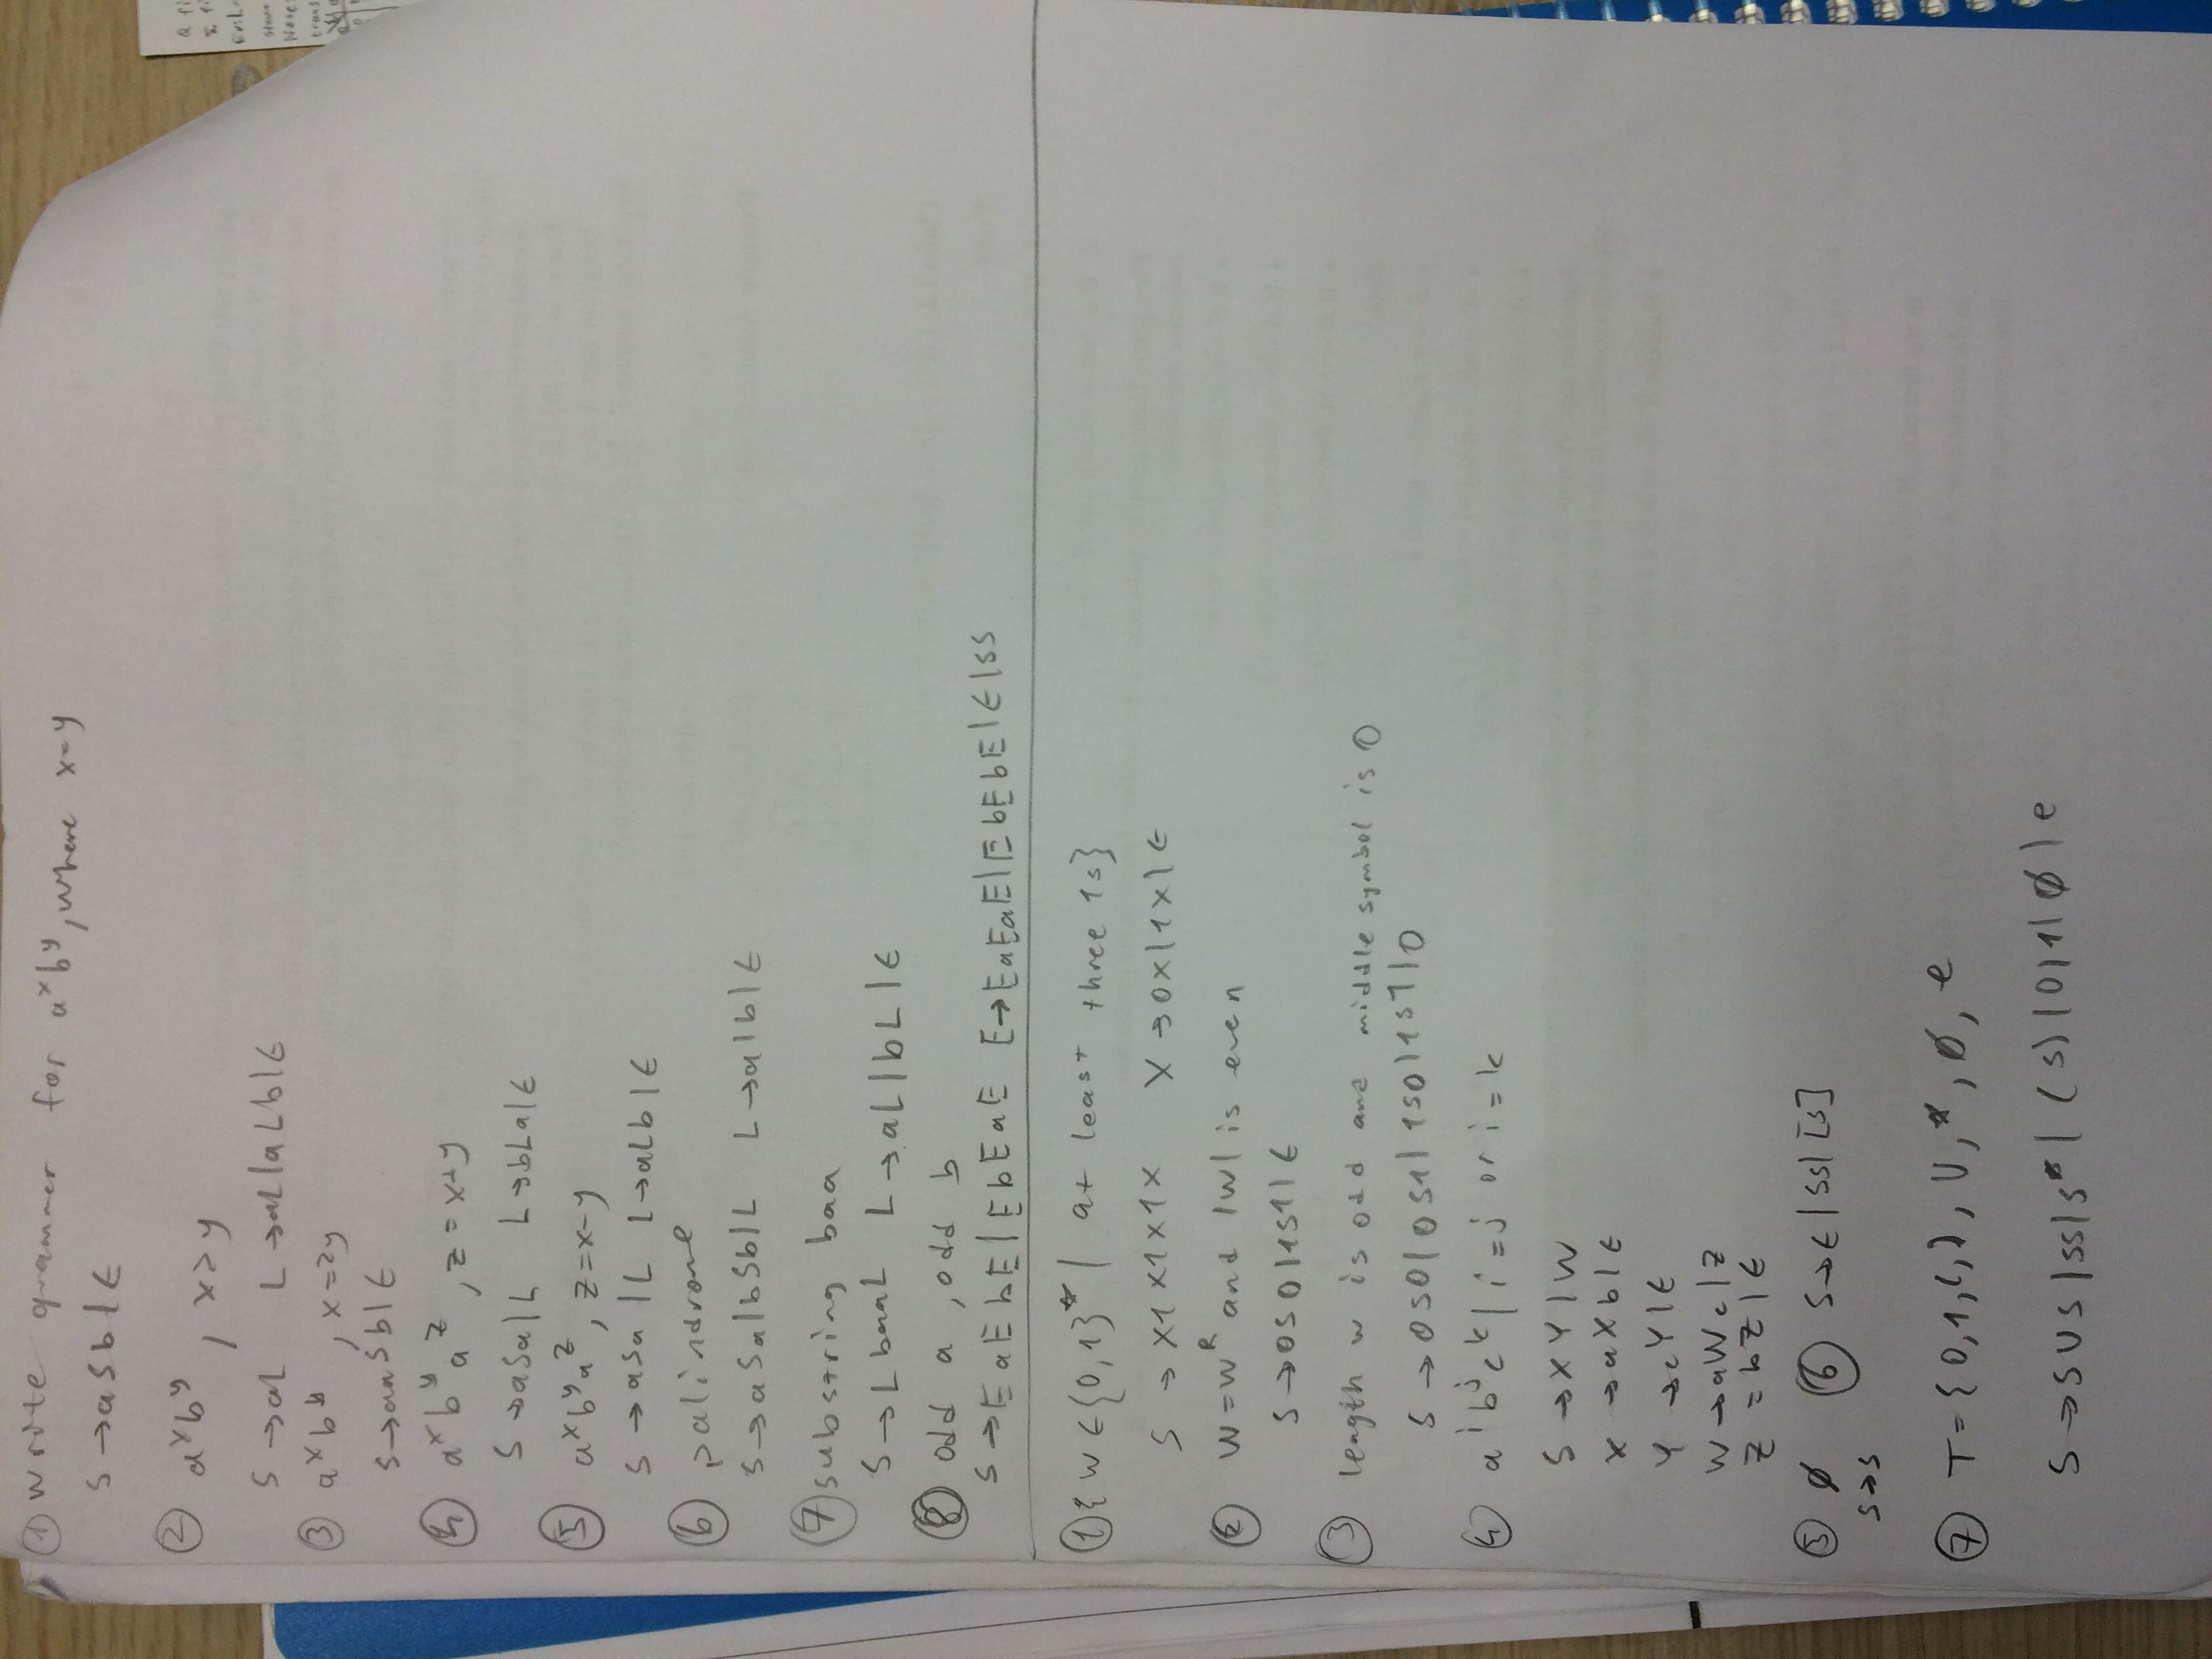 ① write grammer for aˣbʸ, where x=y
S → aSb | ϵ
② aˣbʸ , x > y
S → aL L → aL | aLb | ϵ
③ aˣbʸ , x = 2y
S → aaSb | ϵ
④ aˣbʸaᶻ , z = x+y
S → aSa | L L → bLa | ϵ
⑤ aˣbʸaᶻ , z = x-y
S → aSa | L L → aLb | ϵ
⑥ palindrome
S → aSa | bSb | L L → a | b | ϵ
⑦ substring baa
S → LbaaL L → aL | bL | ϵ
⑧ odd a , odd b
S → EaEbE | EbEaE E → EaEaE | EbEbE | ϵ | SS
① { w ϵ {0,1}* | at least three 1s}
S → X1X1X1X X → 0X | 1X | ϵ
② w = wᴿ and |w| is even
S → 0S0 | 1S1 | ϵ
③ length w is odd and middle symbol is 0
S → 0S0 | 0S1 | 1S0 | 1S1 | 0
④ aⁱbʲcᵏ | i = j or i = k
S → XY | W
X → aXb | ϵ
Y → cY | ϵ
W → aWc | Z
Z = bZ | ϵ
⑤ ∅ ⑥ S → ϵ | SS | [S]
S → S
⑦ T = {0,1,(,), U, *, ∅, e
S → S U S | SS | S* | (S) | 0 | 1 | ∅ | e